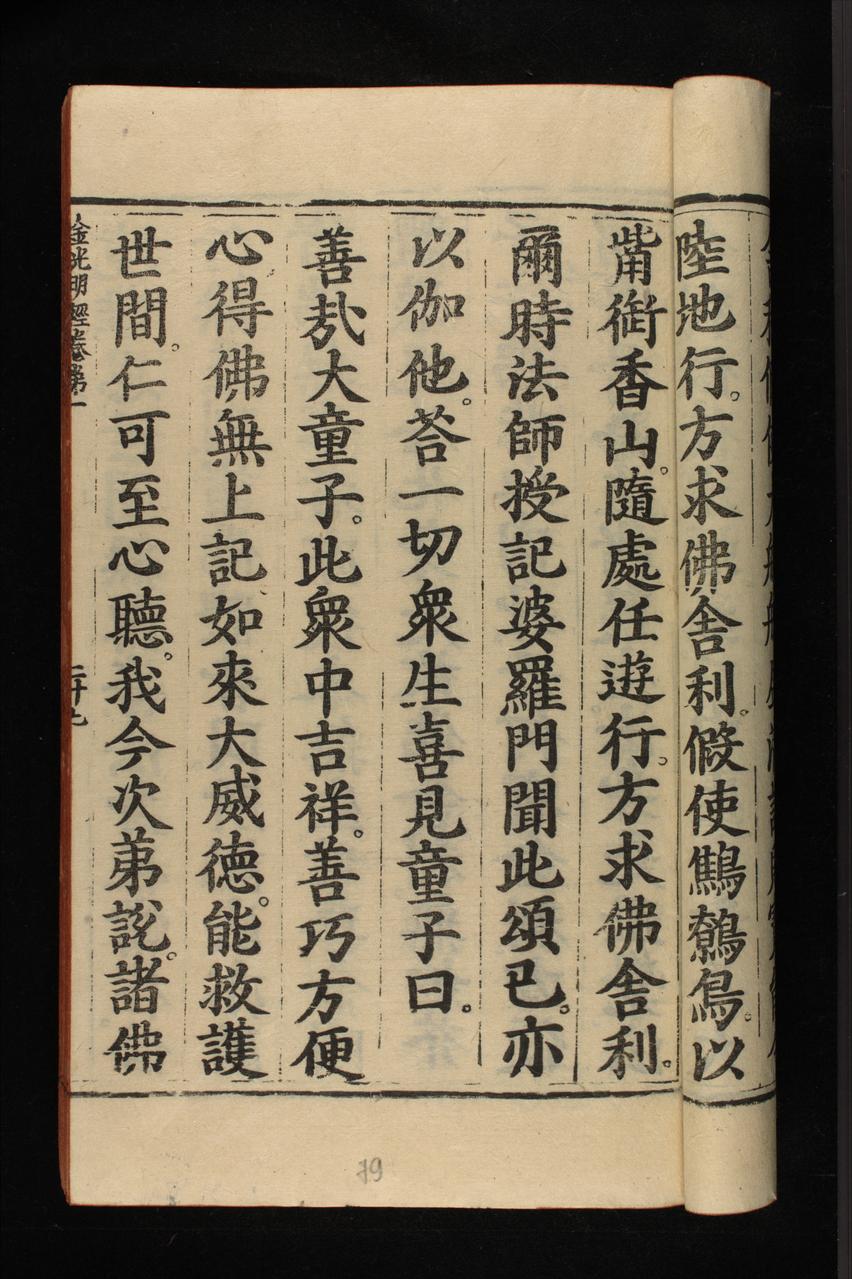 陸地行。方求佛舍利。假使鷦鷯鳥。以
觜銜香山。隨處任遊行。方求佛舍利。
爾時法師授記婆羅門聞此頌已。亦
以伽他。荅一切衆生喜見童子曰。
善哉大童子。此衆中吉祥。善巧方便
心得佛無上記。如來大威德。能救護
世間。仁可至心聽。我今次弟說。諸佛
金光明經卷第一
二十九
79